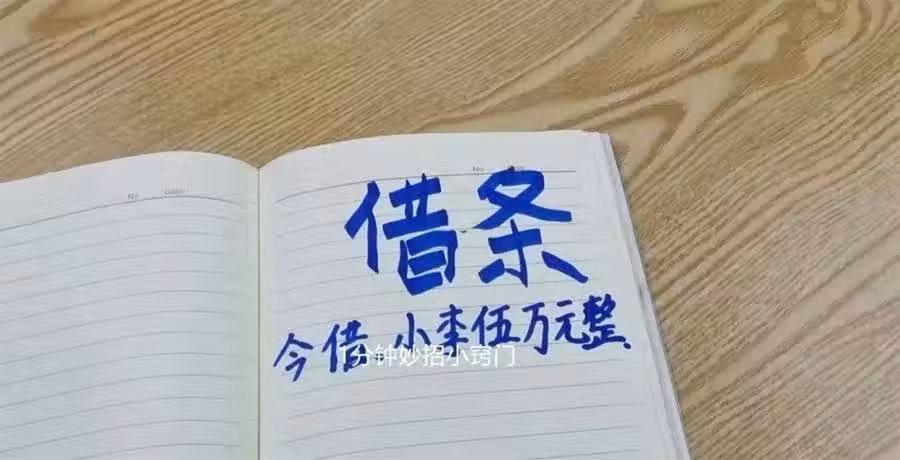 No. Date
借条
今借 小李伍万元整.
1分钟妙招小窍门